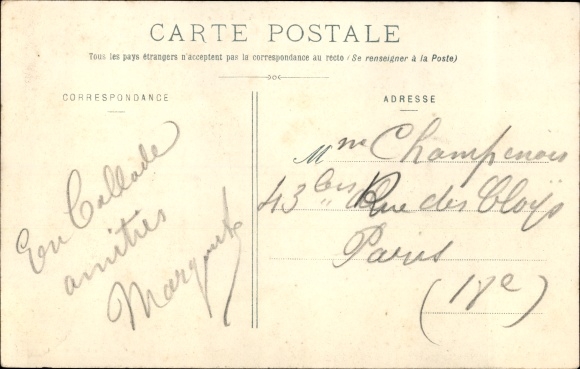 CARTE POSTALE
Tous les pays étrangers n'acceptent pas la correspondance au recto (Se renseigner à la Poste)
CORRESPONDANCE
En Ballade
amitiés
ADRESSE
Mme Champenois
43 bis Rue des Cloÿs
Paris
(18e)